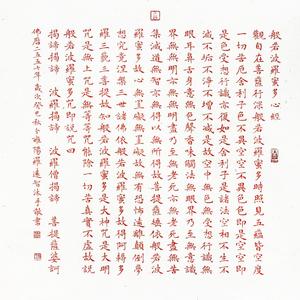 般若波羅蜜多心經
觀自在菩薩行深般若波羅蜜多時照見五蘊皆空度
一切苦厄舍利子色不異空空不異色色即是空空即
是色受想行識亦復如是舍利子是諸法空相不生不
滅不垢不淨不增不減是故空中無色無受想行識無
眼耳鼻舌身意無色聲香味觸法無眼界乃至無意識
界無無明亦無無明盡乃至無老死亦無老死盡無苦
集滅道無智亦無得以無所得故菩提薩埵依般若波
羅蜜多故心無罣礙無罣礙故無有恐怖遠離顛倒夢
想究竟涅槃三世諸佛依般若波羅蜜多故得阿耨多
羅三藐三菩提故知般若波羅蜜多是大神咒是大明
咒是無上咒是無等等咒能除一切苦真實不虛故說
般若波羅蜜多咒即說咒曰
揭諦揭諦 波羅揭諦 波羅僧揭諦 菩提薩婆訶
佛曆二五五七年歲次癸巳秋 陽羅 智沐手敬書